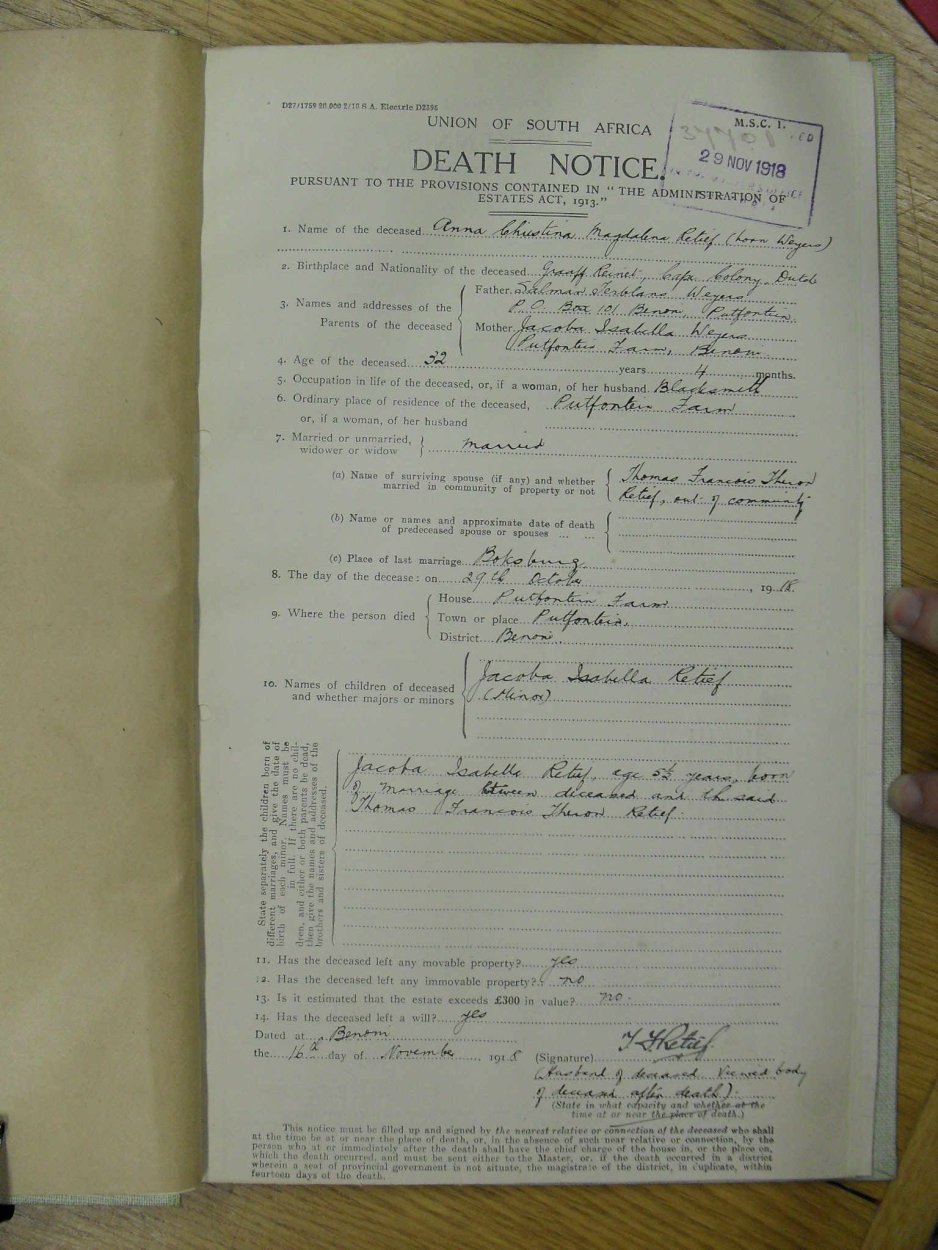 D27/1759 20,000 2/18 S.A. Electric D2395
M.S.C. 1.
UNION OF SOUTH AFRICA
29 NOV 1918
DEATH NOTICE.
PURSUANT TO THE PROVISIONS CONTAINED IN "THE ADMINISTRATION OF
ESTATES ACT, 1913."
1. Name of the deceased Anna Christina Magdalena Retief (born Weyers)
2. Birthplace and Nationality of the deceased Graaff Reinet, Cape Colony, Dutch
3. Names and addresses of the Parents of the deceased
Father Salman Terblans Weyers
P.O. Box 101 Benoni, Putfontein
Mother Jacoba Isabella Weyers
Putfontein Farm, Benoni
4. Age of the deceased 32 years 4 months.
5. Occupation in life of the deceased, or, if a woman, of her husband Blacksmith
6. Ordinary place of residence of the deceased, Putfontein Farm
or, if a woman, of her husband
7. Married or unmarried, widower or widow married
(a) Name of surviving spouse (if any) and whether Thomas Francois Theron
married in community of property or not Retief, out of community
(b) Name or names and approximate date of death
of predeceased spouse or spouses ... ...
(c) Place of last marriage Boksburg
8. The day of the decease: on 29th October, 1918.
9. Where the person died
House Putfontein Farm
Town or place Putfontein,
District Benoni.
10. Names of children of deceased and whether majors or minors
Jacoba Isabella Retief
(Minor)
State separately the children born of
different marriages, and give the date of
birth of each minor. Names must be
in full. If there are no chil-
dren, and either or both parents be dead,
then give the names and addresses of the
brothers and sisters of deceased.
Jacoba Isabella Retief, age 5½ years, born
of marriage between deceased and the said
Thomas Francois Theron Retief.
11. Has the deceased left any movable property? yes
12. Has the deceased left any immovable property? no
13. Is it estimated that the estate exceeds £300 in value? no.
14. Has the deceased left a will? yes
Dated at Benoni
the 16th day of November 1918
(Signature) T F Retief
(Husband of deceased. Viewed body
of deceased after death).
(State in what capacity and whether at the
time at or near the place of death.)
This notice must be filled up and signed by the nearest relative or connection of the deceased who shall
at the time be at or near the place of death, or, in the absence of such near relative or connection, by the
person who at or immediately after the death shall have the chief charge of the house in, or the place on,
which the death occurred, and must be sent either to the Master, or, if the death occurred in a district
wherein a seat of provincial government is not situate, the magistrate of the district, in duplicate, within
fourteen days of the death.